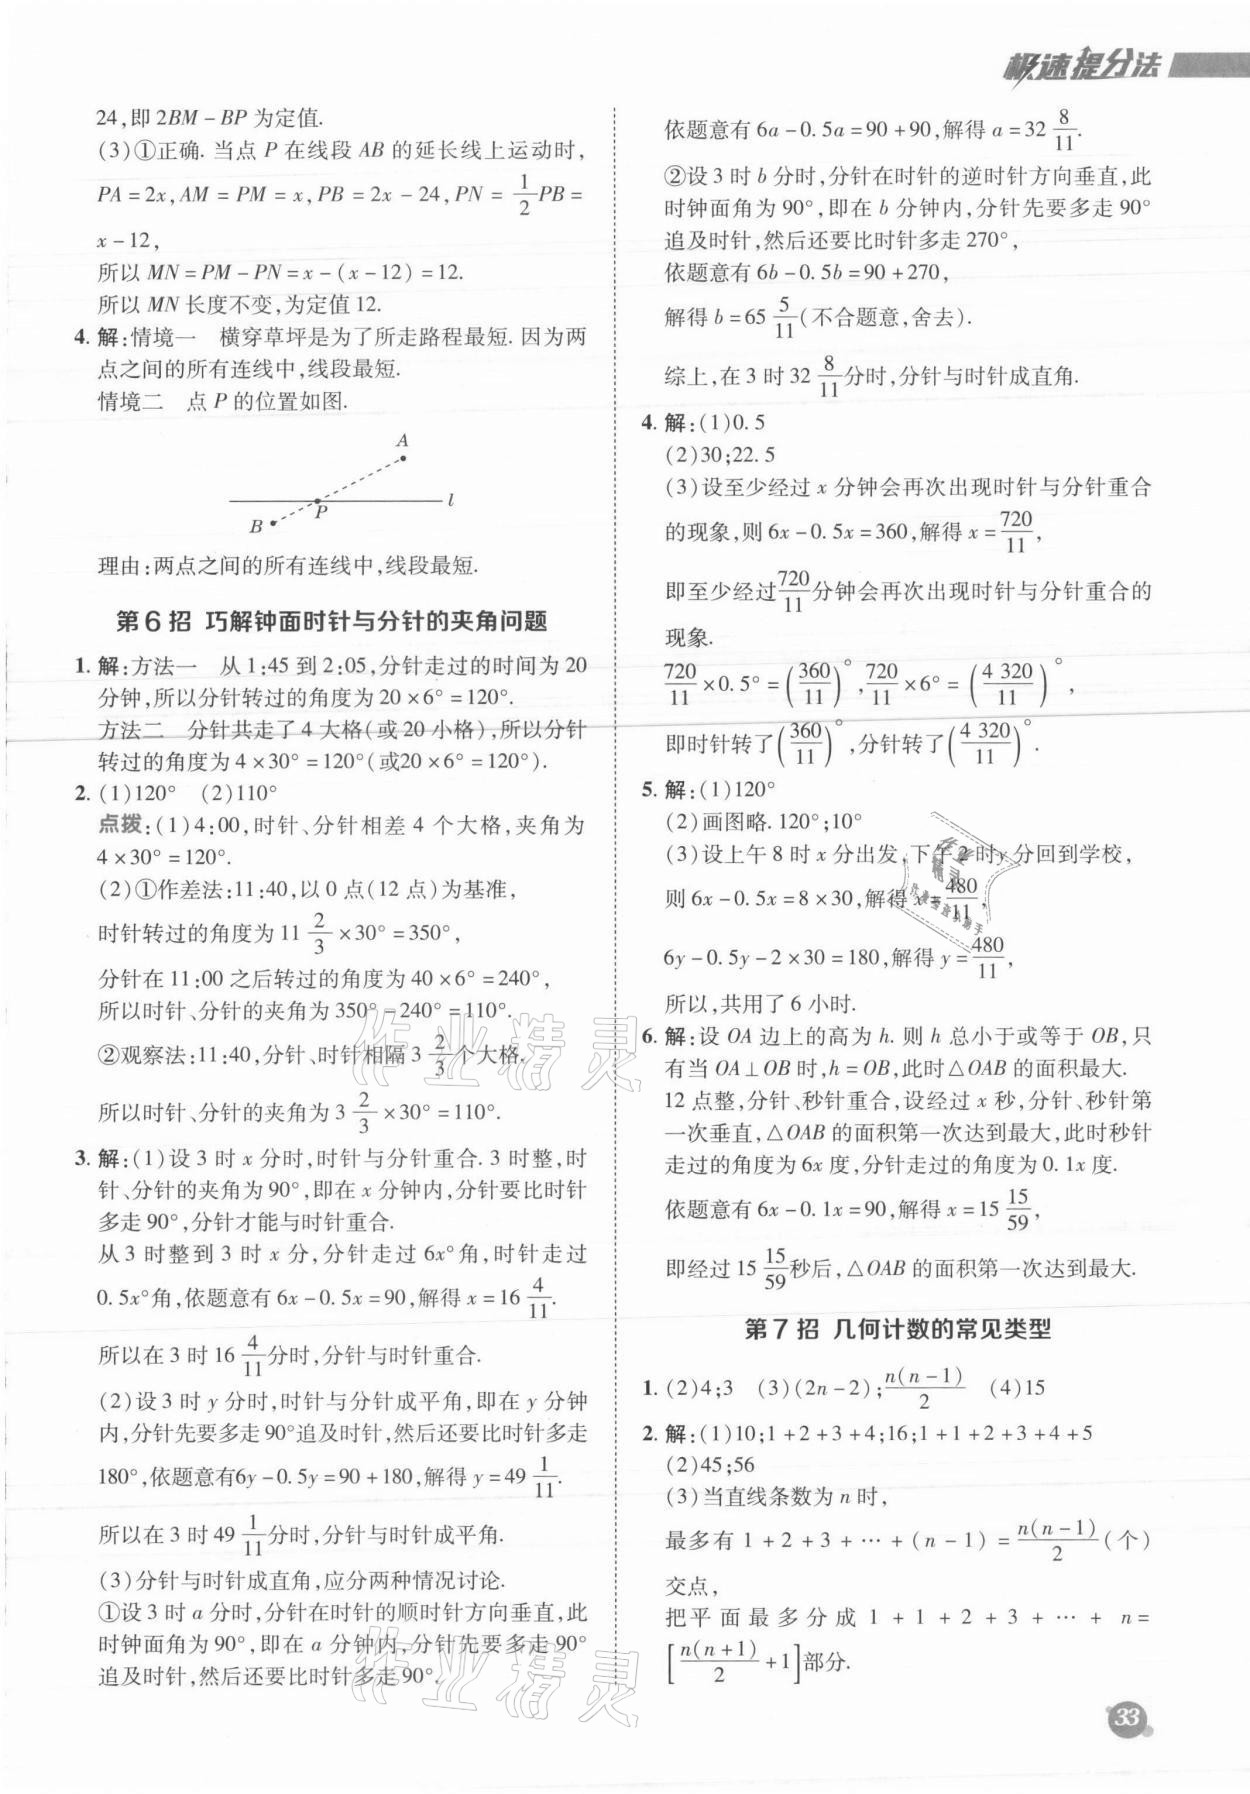 极速提分法
24,即 2BM－BP 为定值.
(3)①正确. 当点 P 在线段 AB 的延长线上运动时,
PA＝2x,AM＝PM＝x,PB＝2x－24,PN＝1/2PB＝
x－12,
所以 MN＝PM－PN＝x－(x－12)＝12.
所以 MN 长度不变,为定值 12.
4. 解:情境一　横穿草坪是为了所走路程最短. 因为两
点之间的所有连线中,线段最短.
情境二　点 P 的位置如图.
A
l
P
B
理由:两点之间的所有连线中,线段最短.
第 6 招　巧解钟面时针与分针的夹角问题
1. 解:方法一　从 1:45 到 2:05,分针走过的时间为 20
分钟,所以分针转过的角度为 20×6°＝120°.
方法二　分针共走了 4 大格(或 20 小格),所以分针
转过的角度为 4×30°＝120°(或20×6°＝120°).
2. (1)120°　(2)110°
点拨:(1)4:00,时针、分针相差 4 个大格,夹角为
4×30°＝120°.
(2)①作差法:11:40,以 0 点(12 点)为基准,
时针转过的角度为 11 2/3×30°＝350°,
分针在 11:00 之后转过的角度为 40×6°＝240°,
所以时针、分针的夹角为 350°－240°＝110°.
②观察法:11:40,分针、时针相隔 3 2/3个大格.
所以时针、分针的夹角为 3 2/3×30°＝110°.
3. 解:(1)设 3 时 x 分时,时针与分针重合. 3 时整,时
针、分针的夹角为 90°,即在 x 分钟内,分针要比时针
多走 90°,分针才能与时针重合.
从 3 时整到 3 时 x 分,分针走过 6x°角,时针走过
0.5x°角,依题意有 6x－0.5x＝90,解得 x＝16 4/11.
所以在 3 时 16 4/11分时,分针与时针重合.
(2)设 3 时 y 分时,时针与分针成平角,即在 y 分钟
内,分针先要多走 90°追及时针,然后还要比时针多走
180°,依题意有6y－0.5y＝90＋180,解得 y＝49 1/11.
所以在 3 时 49 1/11分时,分针与时针成平角.
(3)分针与时针成直角,应分两种情况讨论.
①设 3 时 a 分时,分针在时针的顺时针方向垂直,此
时钟面角为 90°,即在 a 分钟内,分针先要多走 90°
追及时针,然后还要比时针多走 90°.
依题意有 6a－0.5a＝90＋90,解得 a＝32 8/11.
②设 3 时 b 分时,分针在时针的逆时针方向垂直,此
时钟面角为 90°,即在 b 分钟内,分针先要多走 90°
追及时针,然后还要比时针多走 270°,
依题意有 6b－0.5b＝90＋270,
解得 b＝65 5/11(不合题意,舍去).
综上,在 3 时 32 8/11分时,分针与时针成直角.
4. 解:(1)0.5
(2)30;22.5
(3)设至少经过 x 分钟会再次出现时针与分针重合
的现象,则 6x－0.5x＝360,解得 x＝720/11,
即至少经过720/11分钟会再次出现时针与分针重合的
现象.
720/11×0.5°＝(360/11)°,720/11×6°＝(4 320/11)°,
即时针转了(360/11)°,分针转了(4 320/11)°.
5. 解:(1)120°
(2)画图略. 120°;10°
(3)设上午 8 时 x 分出发,下午 2 时y 分回到学校,
则 6x－0.5x＝8×30,解得 x＝480/11,
6y－0.5y－2×30＝180,解得 y＝480/11,
所以,共用了 6 小时.
6. 解:设 OA 边上的高为 h. 则 h 总小于或等于 OB,只
有当 OA⊥OB 时,h＝OB,此时△OAB 的面积最大.
12 点整,分针、秒针重合,设经过 x 秒,分针、秒针第
一次垂直,△OAB 的面积第一次达到最大,此时秒针
走过的角度为 6x 度,分针走过的角度为 0.1x 度.
依题意有 6x－0.1x＝90,解得 x＝15 15/59,
即经过 15 15/59秒后,△OAB 的面积第一次达到最大.
第 7 招　几何计数的常见类型
1. (2)4;3　(3)(2n－2);n(n－1)/2　(4)15
2. 解:(1)10;1＋2＋3＋4;16;1＋1＋2＋3＋4＋5
(2)45;56
(3)当直线条数为 n 时,
最多有 1＋2＋3＋…＋(n－1)＝n(n－1)/2(个)
交点,
把平面最多分成 1＋1＋2＋3＋…＋n＝
[n(n＋1)/2＋1]部分.
33
作业精灵
作业精灵
作业精灵